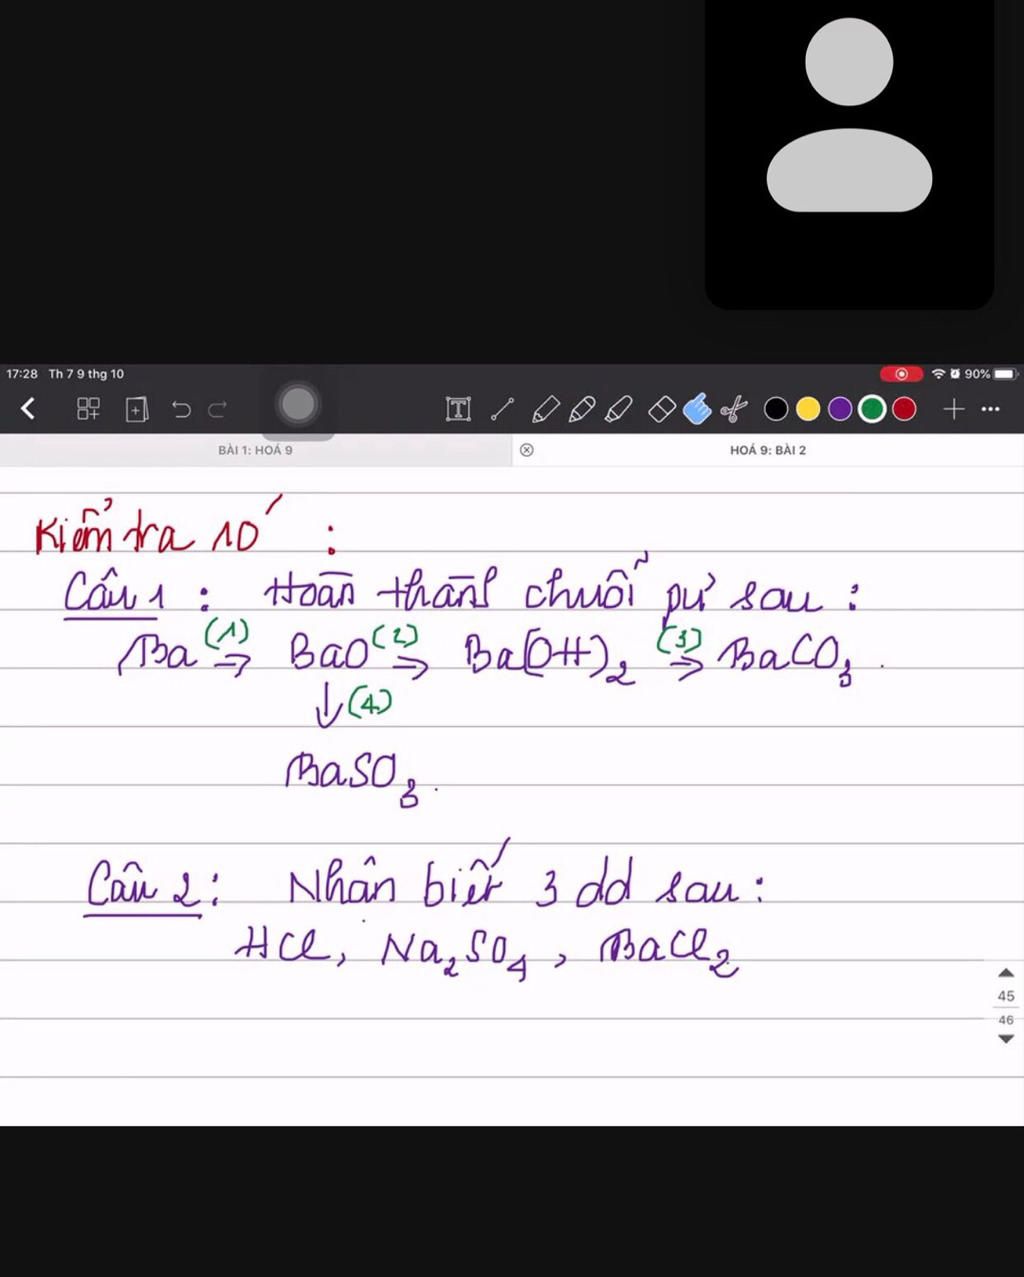 17:28 Th 7 9 thg 10 90%
BÀI 1: HOÁ 9 HOÁ 9: BÀI 2
Kiểm tra 10' :
Câu 1 : Hoàn thành chuỗi pứ sau :
Ba (1)→ BaO (2)→ Ba(OH)₂ (3)→ BaCO₃ .
↓(4)
BaSO₃ .
Câu 2 : Nhân biết 3 dd sau :
HCl, Na₂SO₄ , BaCl₂
45
46